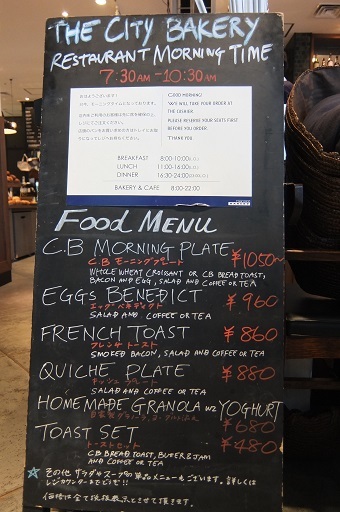 THE CITY BAKERY
RESTAURANT MORNING TIME
7:30AM-10:30AM
おはようございます!
只今、モーニングタイムになっております。
GOOD MORNING!
WE WILL TAKE YOUR ORDER AT
THE CASHIER.
PLEASE RESERVE YOUR SEATS FIRST
BEFORE YOU ORDER.
THANK YOU
BREAKFAST 8:00-10:00
LUNCH 11:00-16:00
DINNER 16:30-24:00
BAKERY & CAFE 8:00-22:00
FOOD MENU
C.B MORNING PLATE ¥1050~
C.B モーニングプレート
WHOLE WHEAT CROISSANT OR CB BREAD TOAST,
BACON AND EGG, SALAD AND COFFEE OR TEA
EGGS BENEDICT ¥960
エッグ ベネディクト
SALAD AND COFFEE OR TEA
FRENCH TOAST ¥860
フレンチ トースト
SMOKED BACON, SALAD AND COFFEE OR TEA
QUICHE PLATE ¥880
キッシュ プレート
SALAD AND COFFEE OR TEA
HOMEMADE GRANOLA WZ YOGHURT
¥680
TOAST SET ¥480
トーストセット
CB BREAD TOAST, BUTTER & JAM
AND COFFEE OR TEA
☆その他 サラダやスープの単品メニューもございます。詳しくは
レジカウンターまでどうぞ!!
価格は全て税抜表示とさせて頂きます。